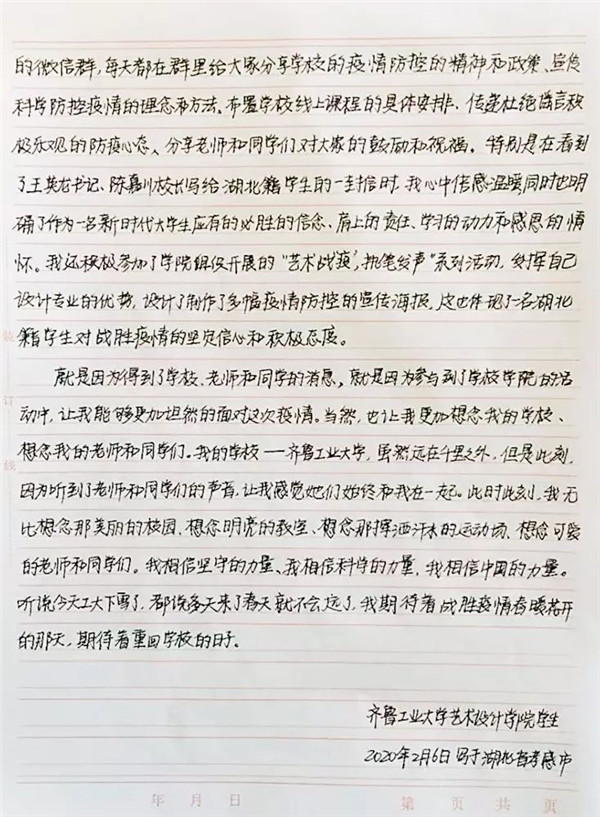 的微信群,每天都在群里给大家分享学校的疫情防控的精神和政策、宣传
科学防控疫情的理念和方法、布置学校线上课程的具体安排、传递杜绝谣言积
极乐观的防疫心态、分享老师和同学们对大家的鼓励和祝福。特别是在看到
了王英龙书记、陈嘉川校长写给湖北籍学生的一封信时,我心中倍感温暖,同时也明
确了作为一名新时代大学生应有的必胜的信念、肩上的责任、学习的动力和感恩的情
怀。我还积极参加了学院组织开展的“艺术战疫,执笔发声”系列活动,发挥自己
设计专业的优势,设计了制作了多幅疫情防控的宣传海报,这也体现了一名湖北
籍学生对战胜疫情的坚定信心和积极态度。
就是因为得到了学校、老师和同学的消息,就是因为参与到了学校学院的活
动中,让我能够更加坦然的面对这次疫情。当然,也让我更加想念我的学校、
想念我的老师和同学们。我的学校——齐鲁工业大学,虽然远在千里之外,但是此刻,
因为听到了老师和同学们的声音,让我感觉她们始终和我在一起。此时此刻,我无
比想念那美丽的校园、想念明亮的教室、想念那挥洒汗水的运动场、想念可爱
的老师和同学们。我相信坚守的力量、我相信科学的力量,我相信中国的力量。
听说今天工大下雪了,都说冬天来了春天就不会远了,我期待着战胜疫情春暖花开
的那天,期待着重回学校的日子。
齐鲁工业大学艺术设计学院学生
2020年2月6日写于湖北省孝感市
装
订
线
年 月 日
第 页 共 页